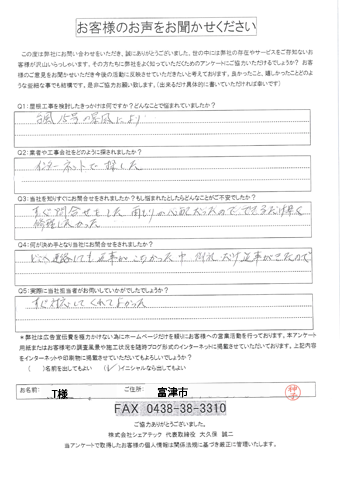 お客様のお声をお聞かせください
この度は弊社にお問い合わせをいただき、誠にありがとうございました。世の中には弊社の存在やサービスをご存知ないお
客様が沢山いらっしゃいます。その方たちに弊社をよく知っていただくためのアンケートにご協力いただけるでしょうか？お客
様のご意見をお聞かせいただき今後の活動に反映させていただきたいと考えております。良かったこと、嬉しかったことどのよ
うな些細な事でも結構です。是非ご協力お願い致します。（出来るだけ具体的に書いていただければ幸いです）
Q1：屋根工事を検討したきっかけは何ですか？どんなことで悩まれていましたか？
台風15号の暴風により
Q2：業者や工事会社をどのように探されましたか？
インターネットで探した
Q3：当社を知りすぐにお問合せをされましたか？もし悩まれたとしたらどんなことがご不安でしたか？
すぐ問合せをした 雨もりの心配だったので、できるだけ早く
修理したかった
Q4：何が決め手となり当社にお問合せをされましたか？
どこへ連絡しても返事がこなかった中 対応 だけ返事がきた
Q5：実際に当社担当者がお伺いしていかがでしたでしょうか？
すぐ対応してくれてよかった
＊弊社は広告宣伝費を極力かけない為にホームページだけを頼りにお客様への営業活動を行っております。本アンケート
用紙またはお客様宅の調査風景や施工状況を随時ブログ形式のインターネットに掲載させていただいております。上記内容
をインターネットや印刷物に掲載させていただいてもよろしいでしょうか？
（　）名前を出してもよい （✓）イニシャルなら出してもよい
お名前： T様 ご住所： 富津市
FAX 0438-38-3310
ご協力ありがとうございました。
株式会社シェアテック 代表取締役 大久保 誠二
当アンケートで取得したお客様の個人情報は関係法規に基づき厳正に管理いたします。